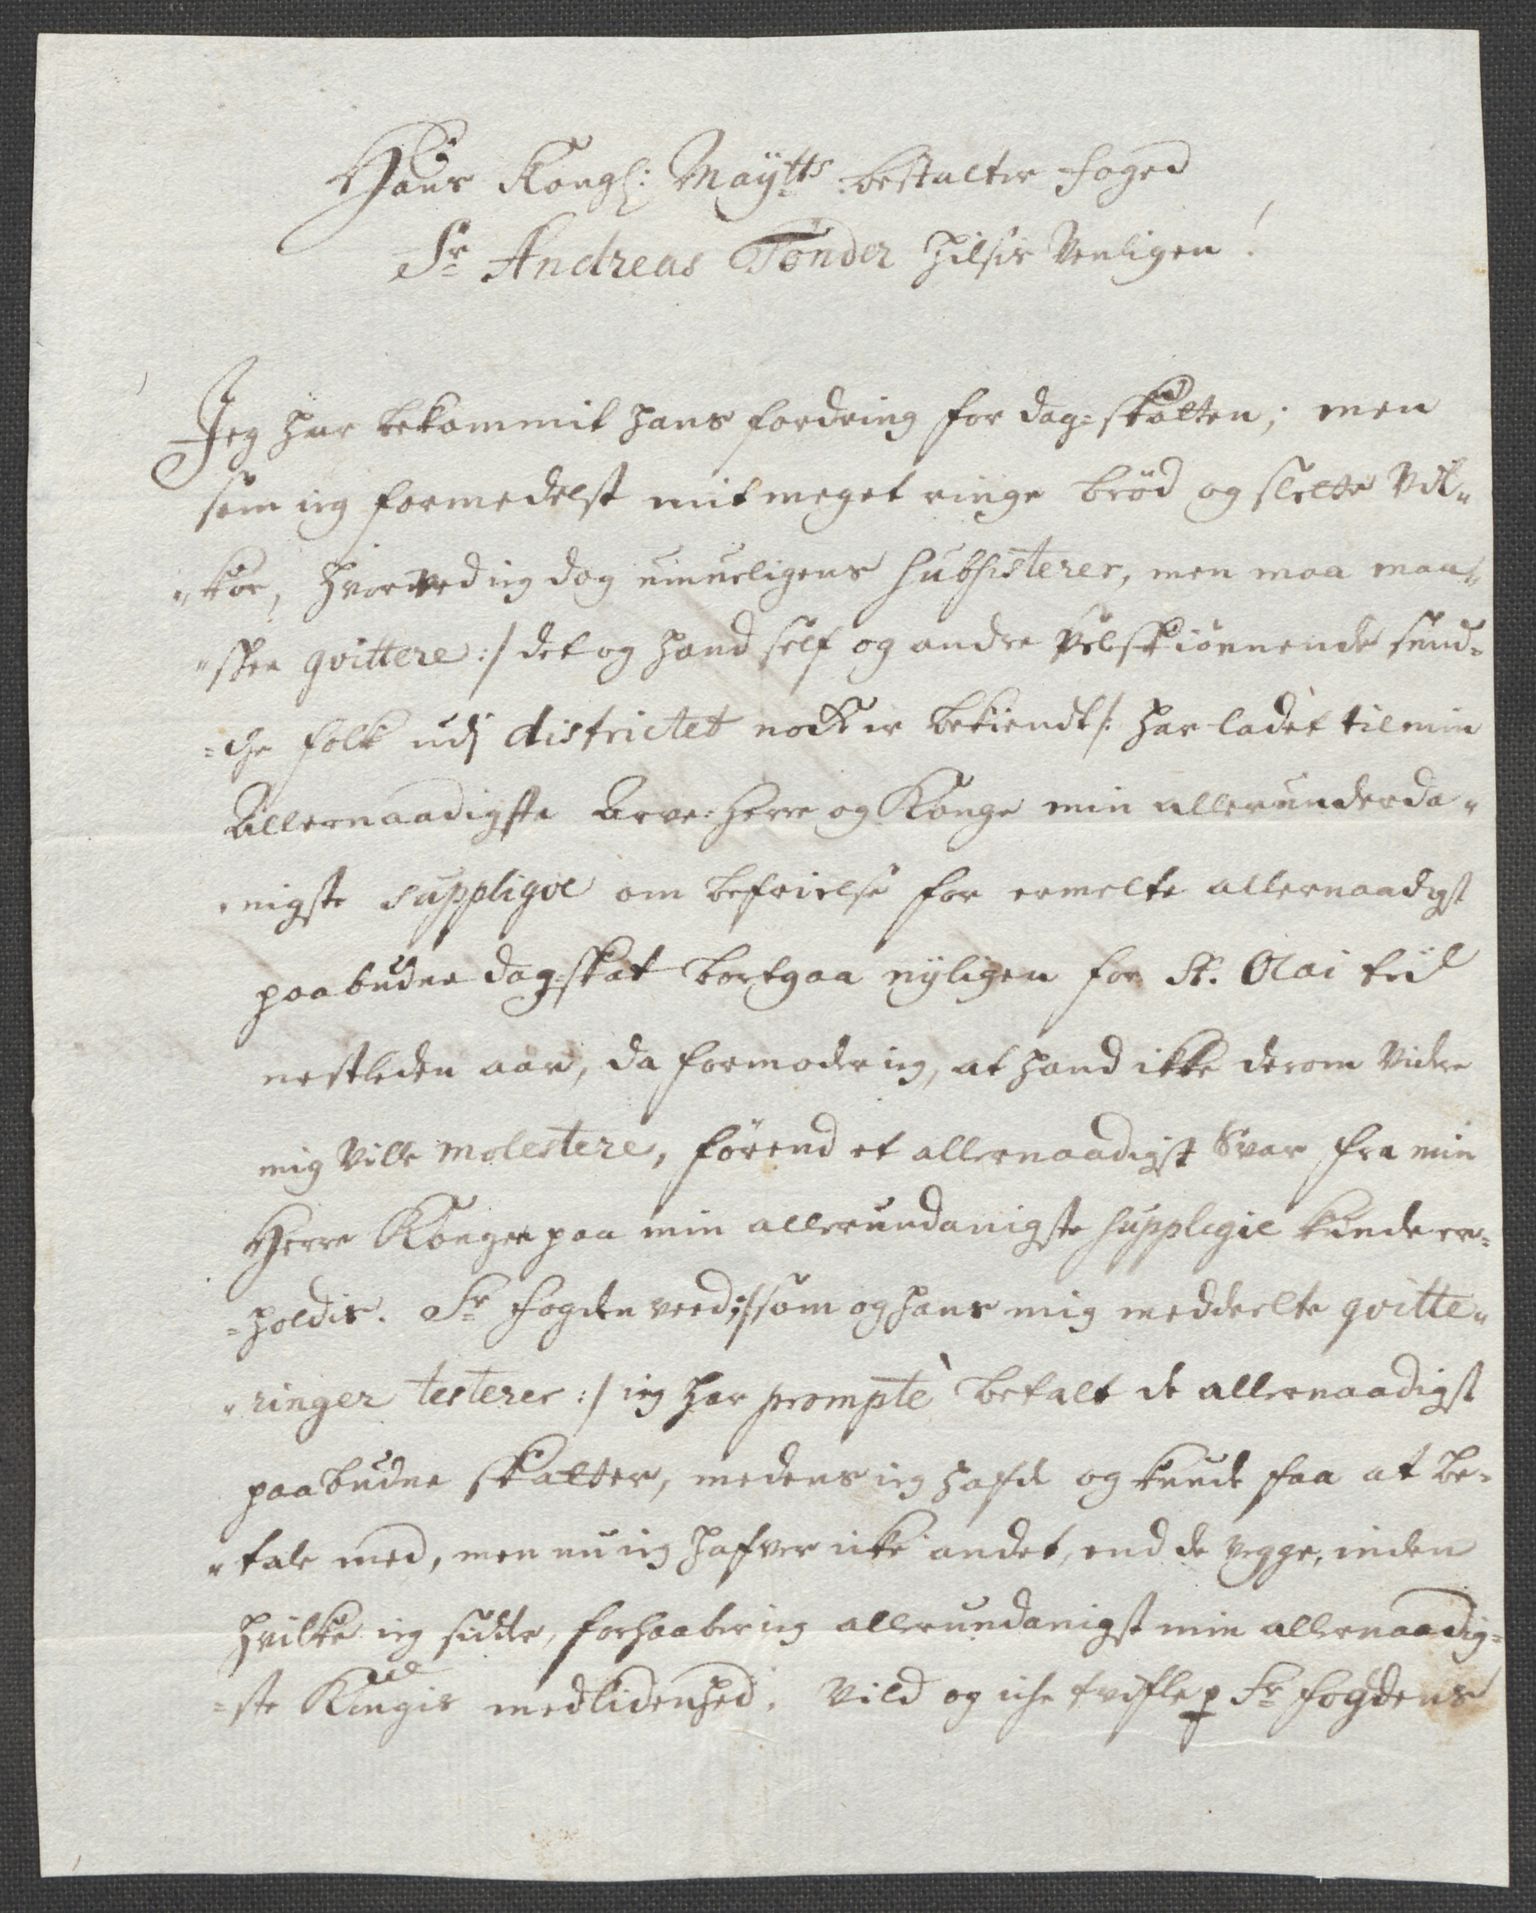 Hans Kongl: Maÿtts bestalter foged
Sr Andreas Tønder hilsis Venligen!
Jeg har bekommit hans fordring for dag-skatten; men
som ieg formedelst mit meget ringe brød og slette Vil„
„kor, hvorved ieg dog umueligens subsisterer, men maa maa„
„skee qvittere :/ det og hand self og andre skiønnende
folk udj districtet nock er bekiendt /: har ladet til min
Allernaadigste Arve-Herre og Konge min allerunderda„
„nigste suppliqve om befrielse for ermelte allernaadigst
paabudne dag-skat bortgaa nyligen for St. Olai tid
nestleden aar, da formoder ieg, at hand ikke derom Videre
mig Ville molestere, førend et allernaadigst Svar fra min
Herre Kongen paa min allerundanigste suppliqve kunde er-
-holdis. Sr fogden veed :/ som og hans mig meddeelte qvitte„
„ringer testerer :/ ieg har promptè betalt de allernaadigst
paabudne skatter, medens ieg hafde og kunde faa at be-
„tale med, men nu ieg hafver icke andet, end de vegge, inden
hvilke ieg sidder, forhaaber ieg allerundanigst min allernaadig-
-ste Kongis medlidenhed. Vild og iche tvifle p Sr fogdens